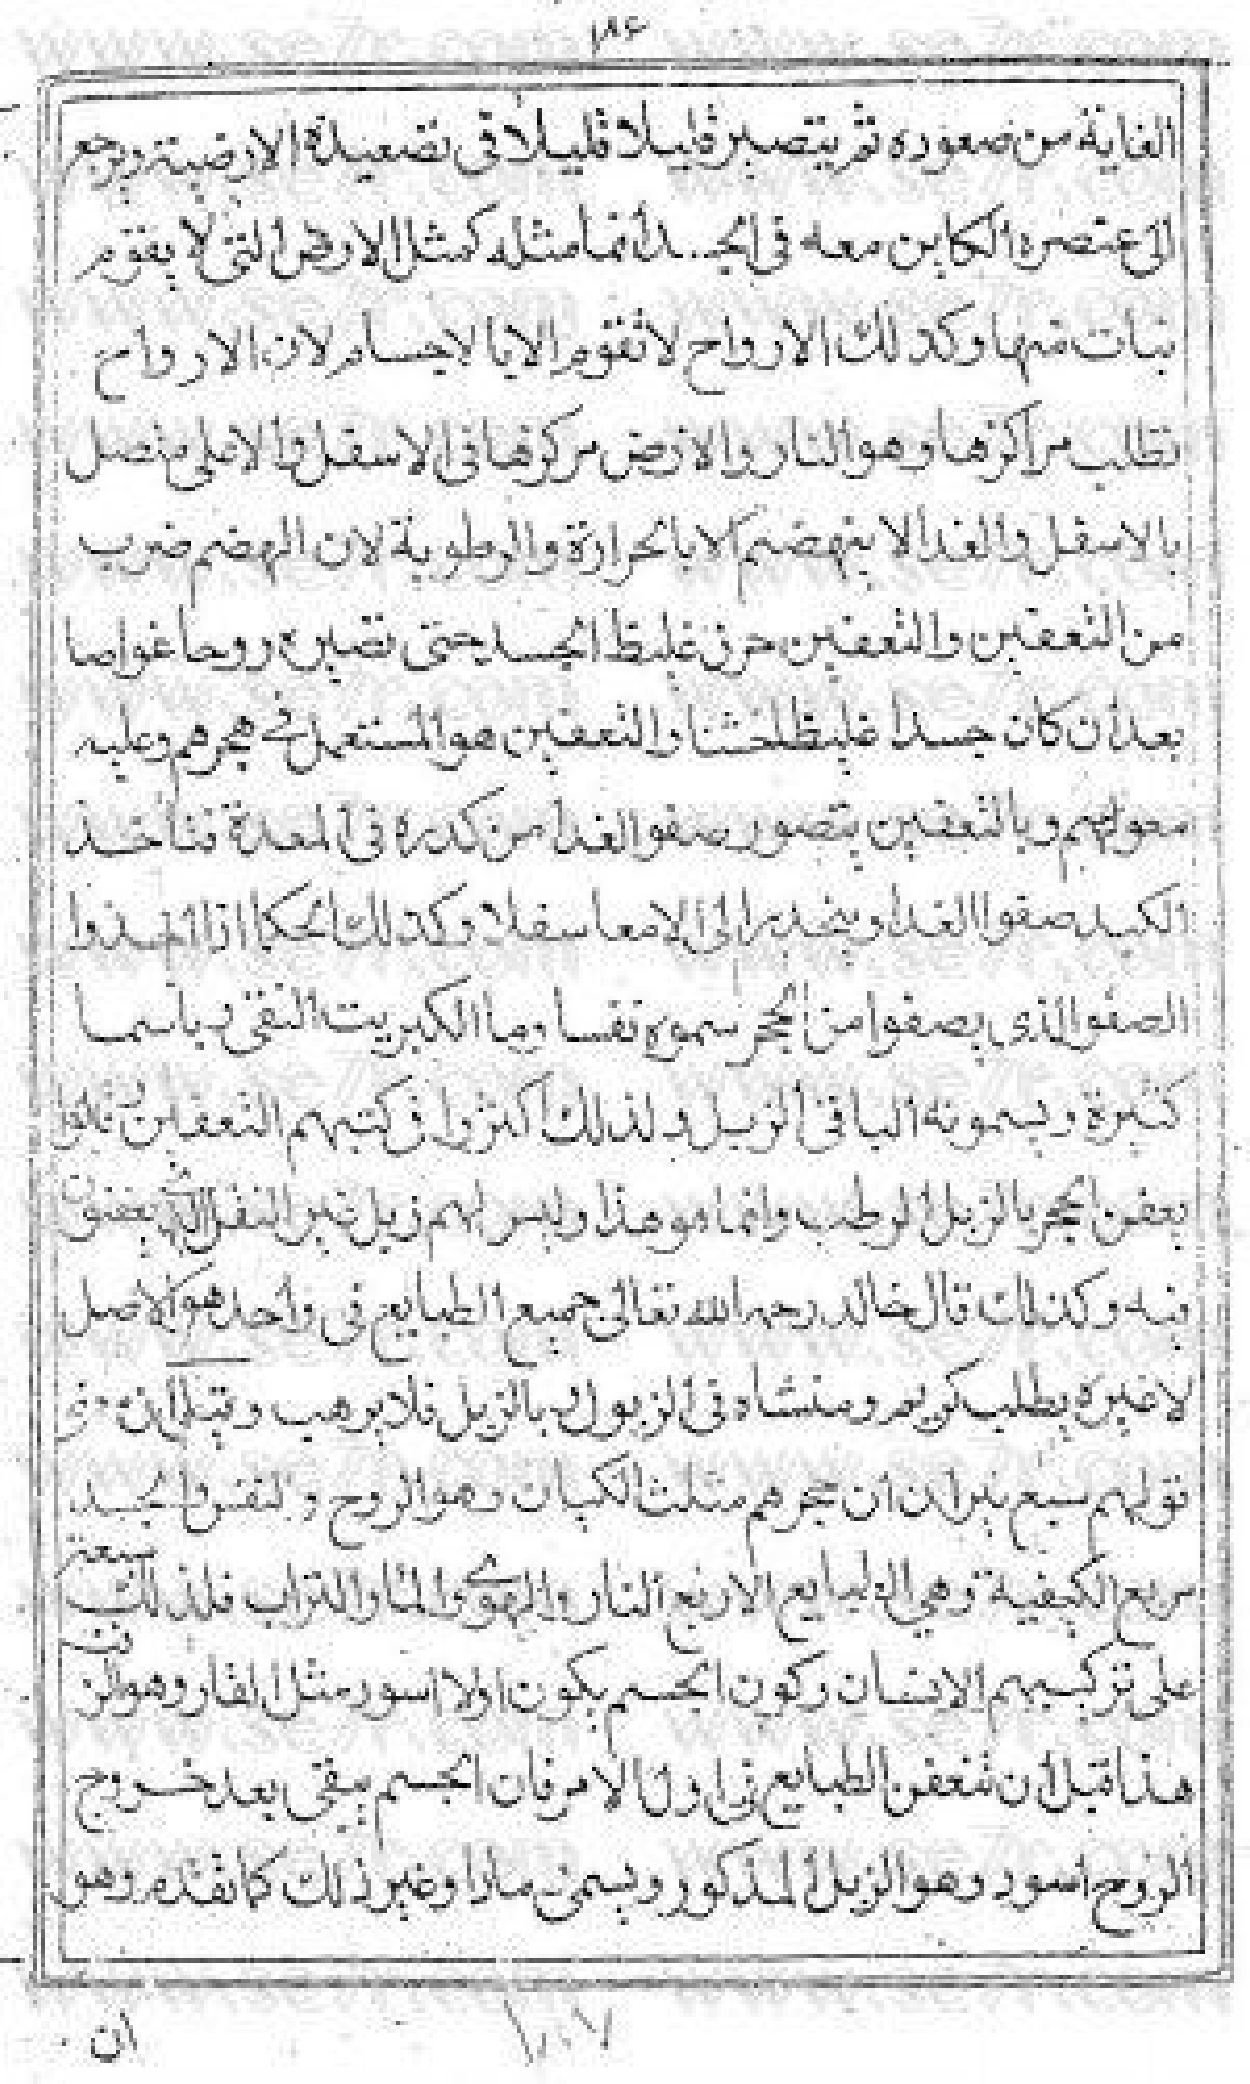 ١٨۶
الغاية من صعوده ثم يتصبر قليلا قليلا فى تصعيده الارضية ويرجع
الى عنصره الكاين معه فى الجسد انما مثله كمثل الارض التى لا يقوم
نبات منها وكذلك الارواح لا تقوم الا بالاجسام لان الارواح
تطلب مراكزها وهو النار والارض مركزها فى الاسفل والاعلى متصل
بالاسفل والغدا لا ينهضم الا بالحرارة والرطوبة لان الهضم ضرب
من التعفين والتعفين حرق غليظ الجسد حتى تصيره روحا غواصا
بعد ان كان جسدا غليظا خشنا والتعفين هو المستعمل فى حجرهم وعليه
معولهم وبالتعفين يتصور صفو الغدا من كدره فى المعدة فتأخذ
الكبد صفوا الغدا وينحدر الى الامعا سفلا وكذلك الحكما اذا اخذوا
الصفو الذى يصفوا من الحجر سموه نفسا وما الكبريت النقى وباسما
كثيرة ويسمونه الباقى الزبل ولذلك اكثروا فى كتبهم التعفين قالوا
يعفن الحجر بالزبل الرطب وانما هو هذا وليس لهم زبل غير الثفل الذى يعفنون
فيه وكذلك قال خالد رحمه الله تعالى جميع الطبايع فى واحد هو الاصل
لا غيره يطلب كريم ومنشاه فى الزبول بالزبل فلا يرهب وقيل ان
قولهم سبع نيران ان حجرهم مثلث الكيان وهو الروح والنفس والجسد
مربع الكيفية وهي الطبايع الاربع النار والهوى والما والتراب فلذلك سبعة
على تركيبهم الانسان وكون الجسم يكون اولا اسود مثل القار وهو الزفت
هذا قبل ان تتعفن الطبايع فى اول الامر فان الجسم يبقى بعد خروج
الروح اسود وهو الزبل المذكور ويسمى رمادا وغير ذلك كما تقدم وهو
ان